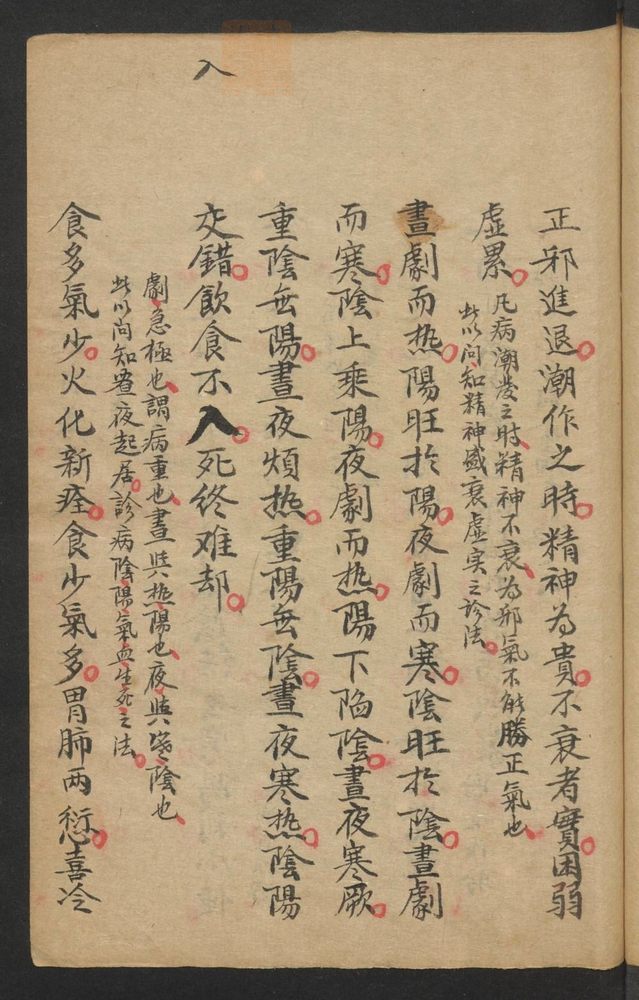 正邪進退。潮作之時。精神為貴。不衰者實。困弱
虛累。凡病潮發之時、精神不衰、為邪氣不能勝正氣也、
此以问知精神盛衰虛实之診法。
晝劇而热。陽旺於陽。夜劇而寒。陰旺於陰。晝劇
而寒。陰上乘陽。夜劇而热。陽下陷陰。晝夜寒厥。
重陰無陽。晝夜煩热。重陽無陰。晝夜寒热。陰陽
交錯。飲食不入。死終难却。
劇、急極也、謂病重也、晝與热、陽也、夜與寒、陰也、
此以问知晝夜起居。診病陰陽氣血生死之法。
食多氣少。火化新痊。食少氣多。胃肺兩愆。喜冷
入